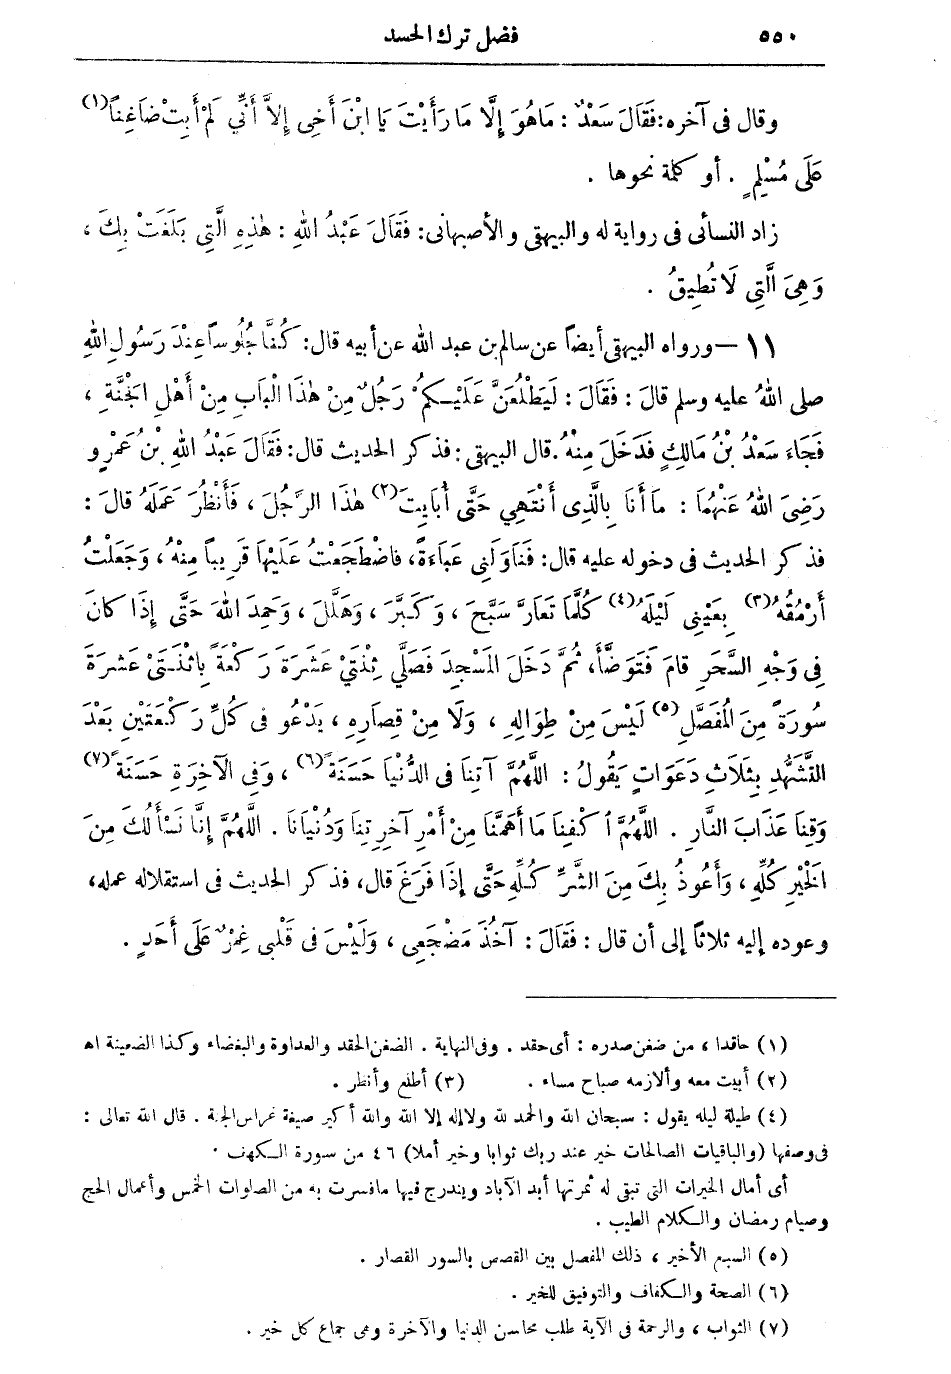 ٥٥٠ فضل ترك الحسد
وقال فى آخره: فَقَالَ سَعْدٌ: مَاهُوَ إِلَّا مَا رَأَيْتَ يَا ابْنَ أَخِى إِلاَّ أَنِّي لَمْ أَبِتْ ضَاغِناً(١)
عَلَى مُسْلِمٍ . أو كلمة نحوها .
زاد النسائى فى رواية له والبيهقى والأصبهانى: فَقَالَ عَبْدُ اللهِ : هٰذِهِ الَّتِي بَلَغَتْ بِكَ ،
وَهِىَ الَّتِى لَا تُطِيقُ .
١١ — ورواه البيهقى أيضاً عن سالم بن عبد الله عن أبيه قال: كُنَّا جُلُوساً عِنْدَ رَسُولِ اللهِ
صلى اللهُ عليه وسلم قالَ : فَقَالَ : لَيَطْلُعَنَّ عَلَيْكُمْ رَجُلٌ مِنْ هٰذَا الْبَابِ مِنْ أَهْلِ الْجَنَّةِ ،
فَجَاءَ سَعْدُ بْنُ مَالِكٍ فَدَخَلَ مِنْهُ. قال البيهقى: فذكر الحديث قال: فَقَالَ عَبْدُ اللهِ بْنُ عَمْرٍ و
رَضِىَ اللهُ عَنْهُمَا : مَا أَنَا بِالَّذِى أَنْتَهِي حَتَّى أُبَايِتَ(٢) هٰذَا الرَّجُلَ ، فَأَنْظُرَ عَمَلَهُ قالَ :
فذكر الحديث فى دخوله عليه قال: فَنَاوَلَنِى عَبَاءَةً، فاضْطَجَعْتُ عَلَيْهَا قَرِيباً مِنْهُ ، وَجَعَلْتُ
أَرْمُقُهُ(٣) بِعَيْنِى لَيْلَهُ(٤) كُلَّمَا تَعَارَّ سَبَّحَ ، وَكَبَّرَ ، وَهَلَّلَ ، وَحَمِدَ اللهَ حَتَّى إِذَا كانَ
فِى وَجْهِ السَّحَرِ قامَ فَتَوَضَّأَ، ثُمَّ دَخَلَ المَسْجِدَ فَصَلَّي ثِنْتَيْ عَشَرَةَ رَكْعَةً بِاثْنَتَىْ عَشْرَةَ
سُورَةً مِنَ الْمُفَصَّلِ(٥) لَيْسَ مِنْ طِوَالِهِ ، وَلَا مِنْ قِصَارِهِ ، يَدْعُو فى كُلِّ رَكْعَتَيْنِ بَعْدَ
التَّشَهُّدِ بِثَلاَثِ دَعَوَاتٍ يَقُولُ : اللَّهُمَّ آتِنَا فى الدُّنْيَا حَسَنَةً(٦) ، وَفى الآخِرَةِ حَسَنَةً(٧)
وَقِنَا عَذَابَ النَّارِ . اللَّهُمَّ اكْفِنَا مَا أَهَمَّنَا مِنْ أَمْرِ آخِرِتِنَا وَدُنْيَانَا . اللَّهُمَّ إِنَّا نَسْأَلُكَ مِنَ
الْخَيْرِ كُلِّهِ ، وَأَعُوذُ بِكَ مِنَ الشَّرِّ كُلِّهِ حَتَّى إِذَا فَرَغَ قال، فذكر الحديث فى استقلاله عمله،
وعوده إليه ثلاثاً إلى أن قال : فَقَالَ : آخُذُ مَضْجَعِى ، وَلَيْسَ فى قَلْبِى غِمْرٌ عَلَى أَحَدٍ .
(١) حاقدا ، من ضغن صدره : أى حقد . وفى النهاية . الضغن الحقد والعداوة والبغضاء وكذا الضغينة اه
(٢) أبيت معه وألازمه صباح مساء . (٣) أطلع وأنظر .
(٤) طيلة ليله يقول : سبحان الله والحمد لله ولا إله إلا الله والله أكبر صيغة غراس الجنة . قال الله تعالى :
فى وصفها (والباقيات الصالحات خير عند ربك ثوابا وخير أملا) ٤٦ من سورة الكهف .
أى أمال الخيرات التى تبقى له ثمرتها أبد الآباد ويندرج فيها مافسرت به من الصلوات الخمس وأعمال الحج
وصيام رمضان والكلام الطيب .
(٥) السبع الأخير ، ذلك المفصل بين القصص بالسور القصار .
(٦) الصحة والكفاف والتوفيق للخير .
(٧) الثواب ، والرحمة فى الآية طلب محاسن الدنيا والآخرة وهى جماع كل خير .